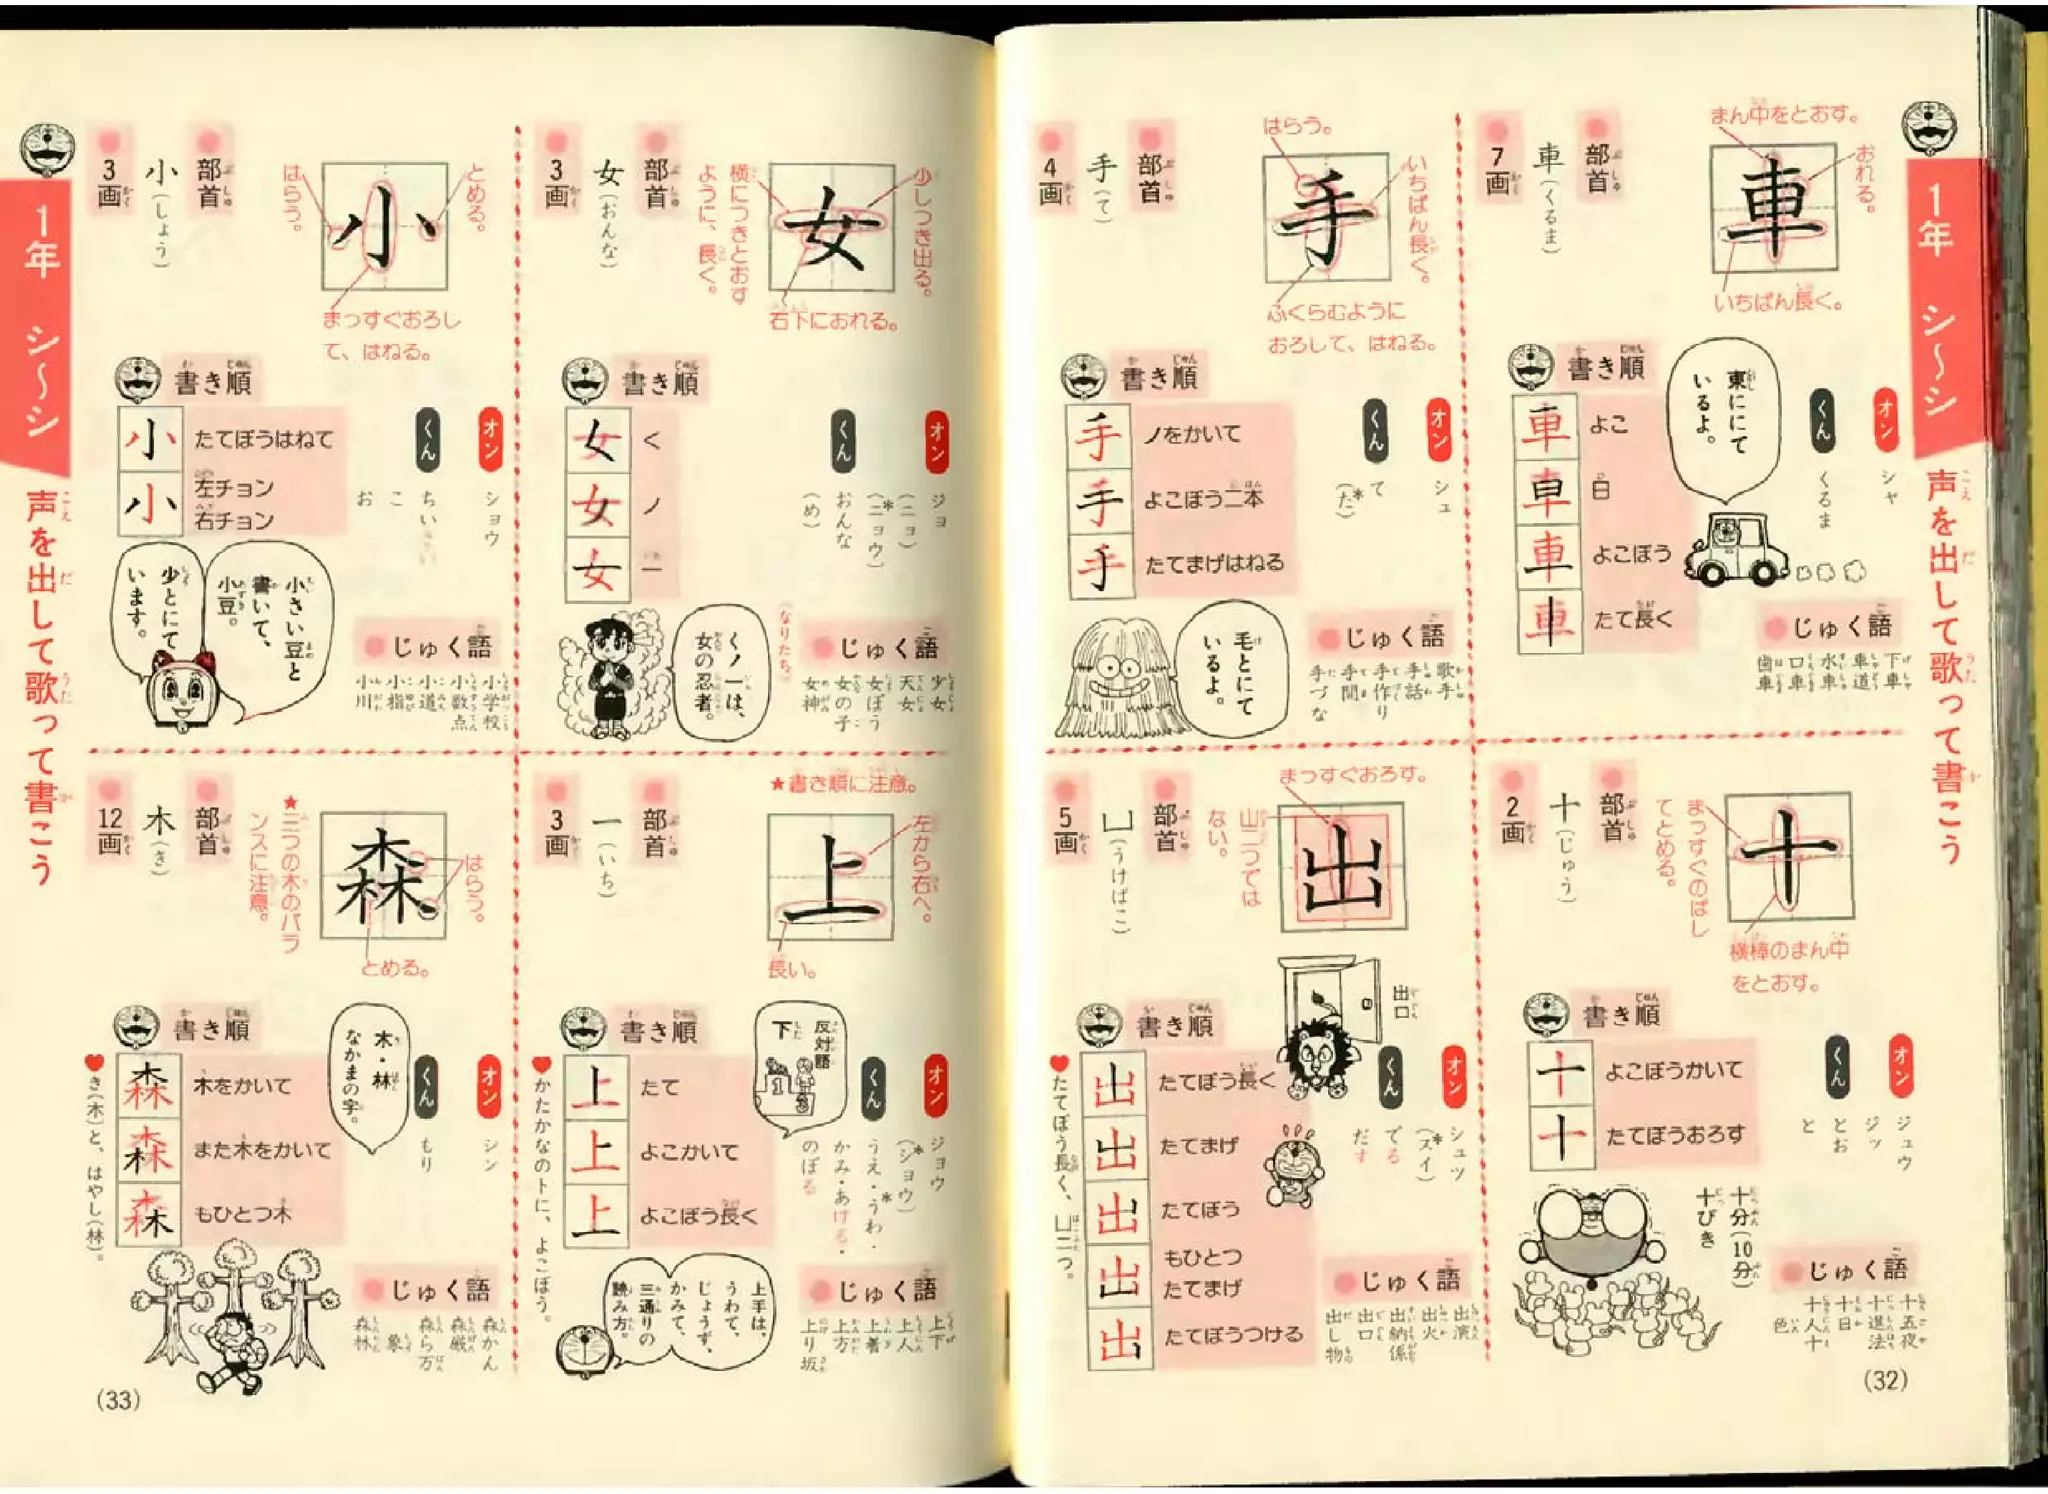 1年 シ〜シ
声を出して歌って書こう
車
部首
車(くるま)
7画
まん中をとおす。
おれる。
いちばん長く。
オン
シャ
くん
くるま
東ににて
いるよ。
書き順
よこ
日
よこぼう
たて長く
じゅく語
下車
車道
水車
口車
歯車
手
部首
手(て)
4画
はらう。
いちばん長く。
ふくらむように
おろして、はねる。
オン
シュ
くん
て
(た*)
書き順
ノをかいて
よこぼう二本
たてまげはねる
毛とにて
いるよ。
じゅく語
歌手
手話
手作り
手間
手づな
十
部首
十(じゅう)
2画
まっすぐのばし
てとめる。
横棒のまん中
をとおす。
オン
ジュウ
ジッ
くん
とお
と
書き順
よこぼうかいて
たてぼうおろす
十分(10分)
十ぴき
じゅく語
十五夜
十進法
十日
十人十
色
出
部首
凵(うけばこ)
5画
まっすぐおろす。
山二つでは
ない。
出口
オン
シュツ
(スイ*)
くん
でる
だす
書き順
たてぼう長く
たてまげ
たてぼう
もひとつ
たてまげ
たてぼうつける
♥たてぼう長く、凵二つ。
じゅく語
出演
出火
出納係
出口
出し物
(32)
1年 シ〜シ
声を出して歌って書こう
女
部首
女(おんな)
3画
少しつき出る。
横につきとおす
ように、長く。
右下におれる。
オン
ジョ
(ニョ)
(ニョウ*)
くん
おんな
(め)
書き順
く
ノ
一
(なりたち)
くノ一は、
女の忍者。
じゅく語
少女
天女
女ぼう
女の子
女神
小
部首
小(しょう)
3画
とめる。
はらう。
まっすぐおろし
て、はねる。
オン
ショウ
くん
ちいさい
こ
お
書き順
たてぼうはねて
左チョン
右チョン
小さい豆と
書いて、
小豆。
少とにて
います。
じゅく語
小学校
小数点
小道
小指
小川
上
部首
一(いち)
3画
★書き順に注意。
左から右へ。
長い。
反対語
下
オン
ジョウ
(ショウ*)
くん
うえ・うわ*・
かみ・あげる・
のぼる
書き順
たて
よこかいて
よこぼう長く
♥かたかなのトに、よこぼう。
上手は、
うわて、
じょうず、
かみて、
三通りの
読み方。
じゅく語
上下
上人
上着
上方
上り坂
森
部首
木(き)
12画
★三つの木のバラ
ンスに注意。
はらう。
とめる。
オン
シン
くん
もり
木・林
なかまの字。
書き順
木をかいて
また木をかいて
もひとつ木
♥き(木)と、はやし(林)。
じゅく語
森かん
森厳
森ら万
象
森林
(33)